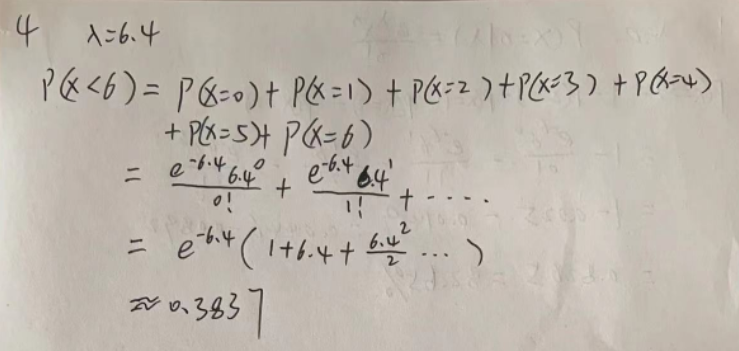 4 λ=6.4
P(X<6) = P(X=0) + P(X=1) + P(X=2) + P(X=3) + P(X=4)
+ P(X=5) + P(X=6)
= e^-6.4 6.4^0 / 0! + e^-6.4 6.4^1 / 1! + ....
= e^-6.4 (1+6.4+ 6.4^2/2 ...)
≈ 0.3837